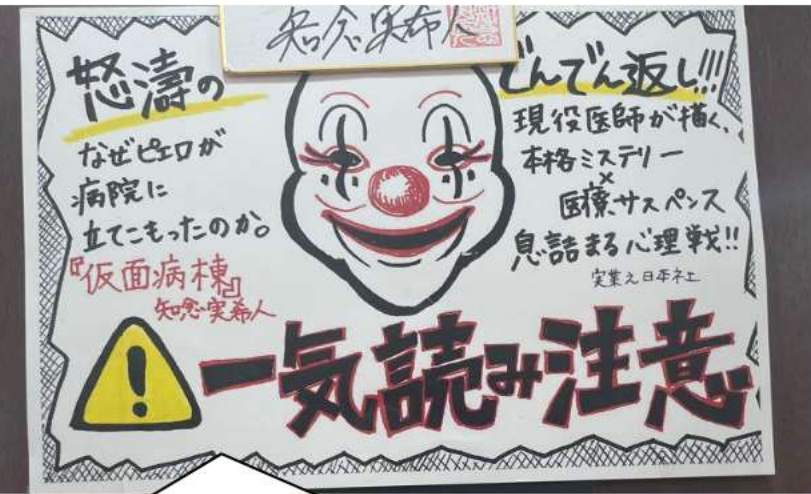 知念実希人
怒濤の
どんでん返し!!!
なぜピエロが
病院に
立てこもったのか。
『仮面病棟』
知念実希人
現役医師が描く、
本格ミステリー
×
医療サスペンス
息詰まる心理戦!!
実業之日本社
一気読み注意